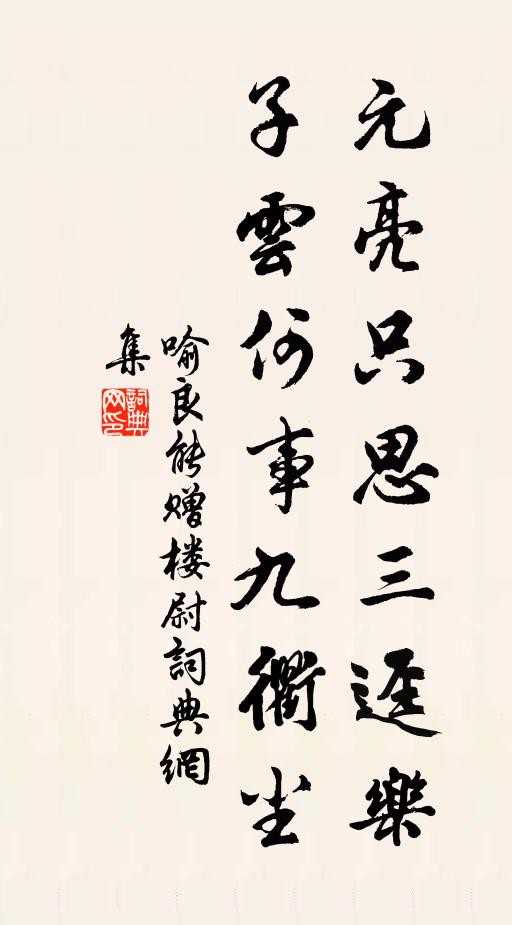 元亮只思三逕樂
子雲何事九衢尘
喻良能赠楼尉詞典網
集
詞典網印